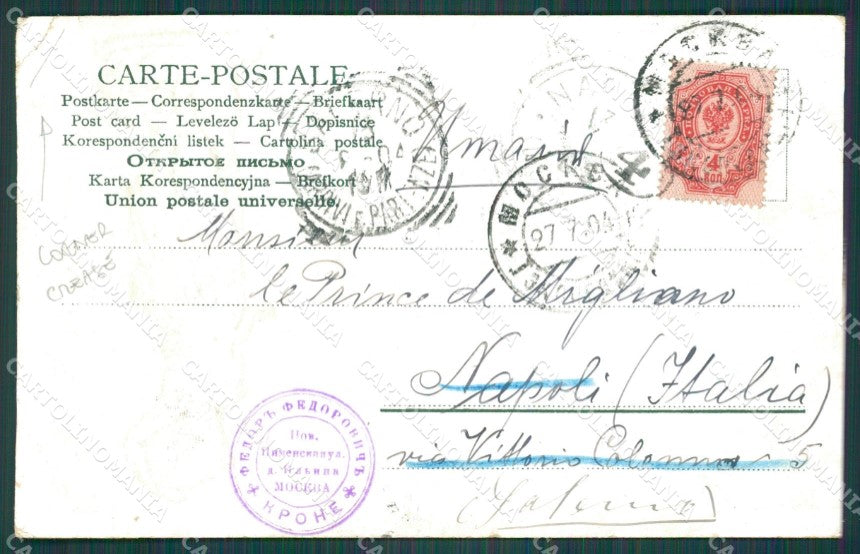 CARTE-POSTALE
Postkarte — Correspondenzkarte — Briefkaart
Post card — Levelezö Lap — Dopisnice
Korespondenční listek — Cartolina postale
Открытое письмо
Karta Korespondencyjna — Brefkort
Union postale universelle.
МОСКВА
МОСКВА
27 7 04
CORNER
CREASE
Monsieur
le Prince de Migliano
Napoli (Italia)
via Vittorio Colonna 5
(Salerno)
ФЕДОРЪ ФЕДОРОВИЧЪ
КРОНЕ
Нов.
д. Ильина
МОСКВА
CARTOLINOMANIA